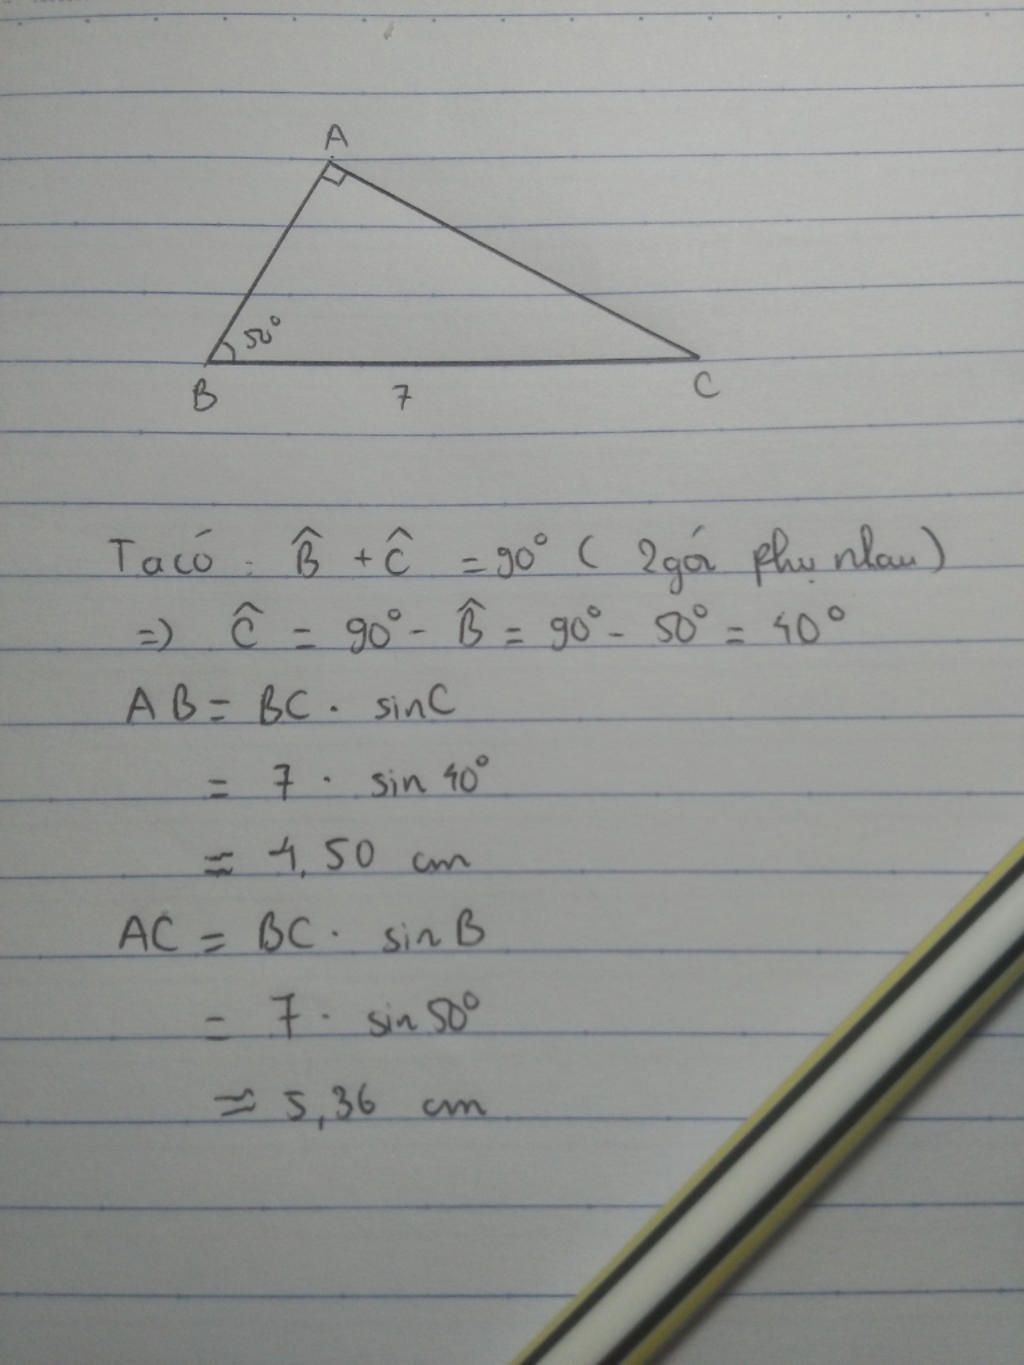 A
50°
B
7
C
Ta có : B̂ + Ĉ = 90° ( 2 góc phụ nhau )
=> Ĉ = 90° - B̂ = 90° - 50° = 40°
AB = BC . sinC
= 7 . sin 40°
≈ 4,50 cm
AC = BC . sin B
= 7 . sin 50°
≈ 5,36 cm